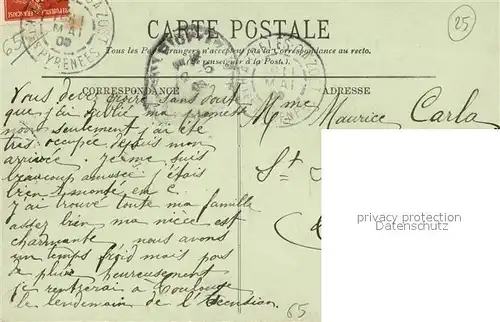 25
65
CARTE POSTALE
Tous les Pays étrangers n'acceptent pas la Correspondance au recto.
(Se renseigner à la Poste).
CORRESPONDANCE
ADRESSE
Vous devez croire sans doute
que j'ai oublié ma promesse
non seulement j'ai été
très occupée depuis mon
arrivée. Je me suis
beaucoup amusée j'étais
bien
j'ai trouvé toute ma famille
assez bien ma nièce est
charmante. nous avons
un temps froid mais pas
de pluie heureusement
je rentrerai à Toulouse
le lendemain de l'Ascension.
Mme Maurice Carla
St
privacy protection
Datenschutz
65